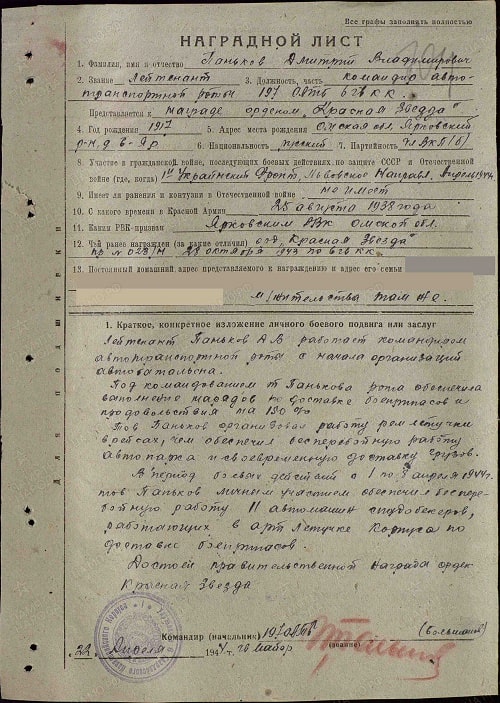 Все графы заполнять полностью
НАГРАДНОЙ ЛИСТ
1. Фамилия, имя и отчество Паньков Дмитрий Владимирович
2. Звание Лейтенант 3. Должность, часть командир авто-
транспортной роты 197 ОАТБ 6гв КК.
Представляется к награде орденом „Красная Звезда“
4. Год рождения 1917 5. Адрес места рождения Омская обл. Ярковский
р-н, д. в-Яр 6. Национальность русский 7. Партийность чл ВКП(б)
8. Участие в гражданской войне, последующих боевых действиях по защите СССР и Отечественной
войне (где, когда) 1й Украинский Фронт, Львовское Направл, Апрель 1944г
9. Имел ли ранения и контузии в Отечественной войне не имеет
10. С какого времени в Красной Армии 25 августа 1938 года
11. Каким РВК призван Ярковским РВК Омской обл.
12. Чем ранее награжден (за какие отличия) орд „Красная Звезда“
пр № 023/н 28 октября 1943 по 6гв КК
13. Постоянный домашний адрес представляемого к награждению и адрес его семьи
м/жительства там же.
1. Краткое, конкретное изложение личного боевого подвига или заслуг
Лейтенант Паньков Д.В работает командиром
автотранспортной роты с начала организаций
автобатальона.
Под командованием т Панькова рота обеспечила
выполнение нарядов по доставке боеприпасов и
продовольствия на 150 %
Тов Паньков организовал работу рем летучки
в ротах, чем обеспечил бесперебойную работу
автопарка и своевременную доставку грузов.
В период боевых действий с 1 по апреля 1944г
тов Паньков личным участием обеспечил беспере-
бойную работу 11 автомашин студобекеров,
работающих в арт летучке Корпуса по
доставке боеприпасов.
Достоен правительственной награды орден
Красная Звезда
Командир (начальник) 197 ОАТБ
(звание)
(Большаков)
22 Апреля 1944 г. майор
Для подшивки